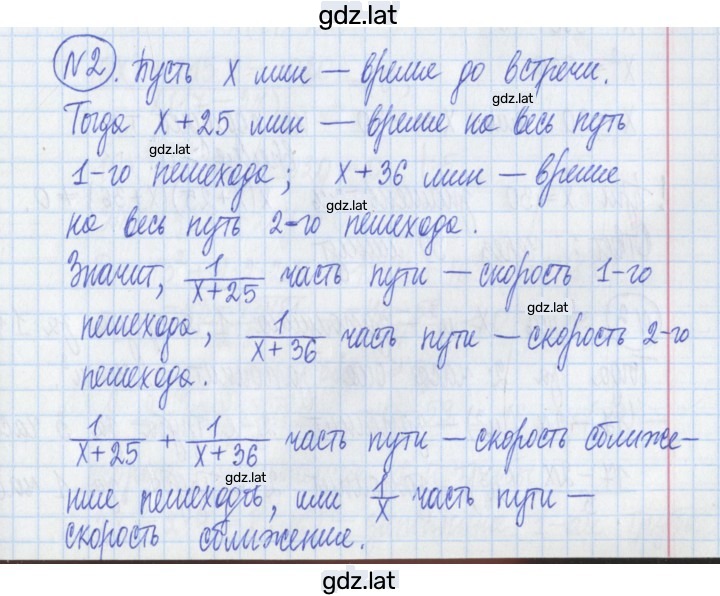 gdz.lat
N2. Пусть x мин — время до встречи.
gdz.lat
Тогда x+25 мин — время на весь путь
gdz.lat
1-го пешехода; x+36 мин — время
gdz.lat
на весь путь 2-го пешехода.
Значит, 1/(x+25) часть пути — скорость 1-го
gdz.lat
пешехода, 1/(x+36) часть пути — скорость 2-го
пешехода.
1/(x+25) + 1/(x+36) часть пути — скорость сближе-
gdz.lat
ние пешеходов, или 1/x часть пути —
gdz.lat
скорость сближение.
gdz.lat